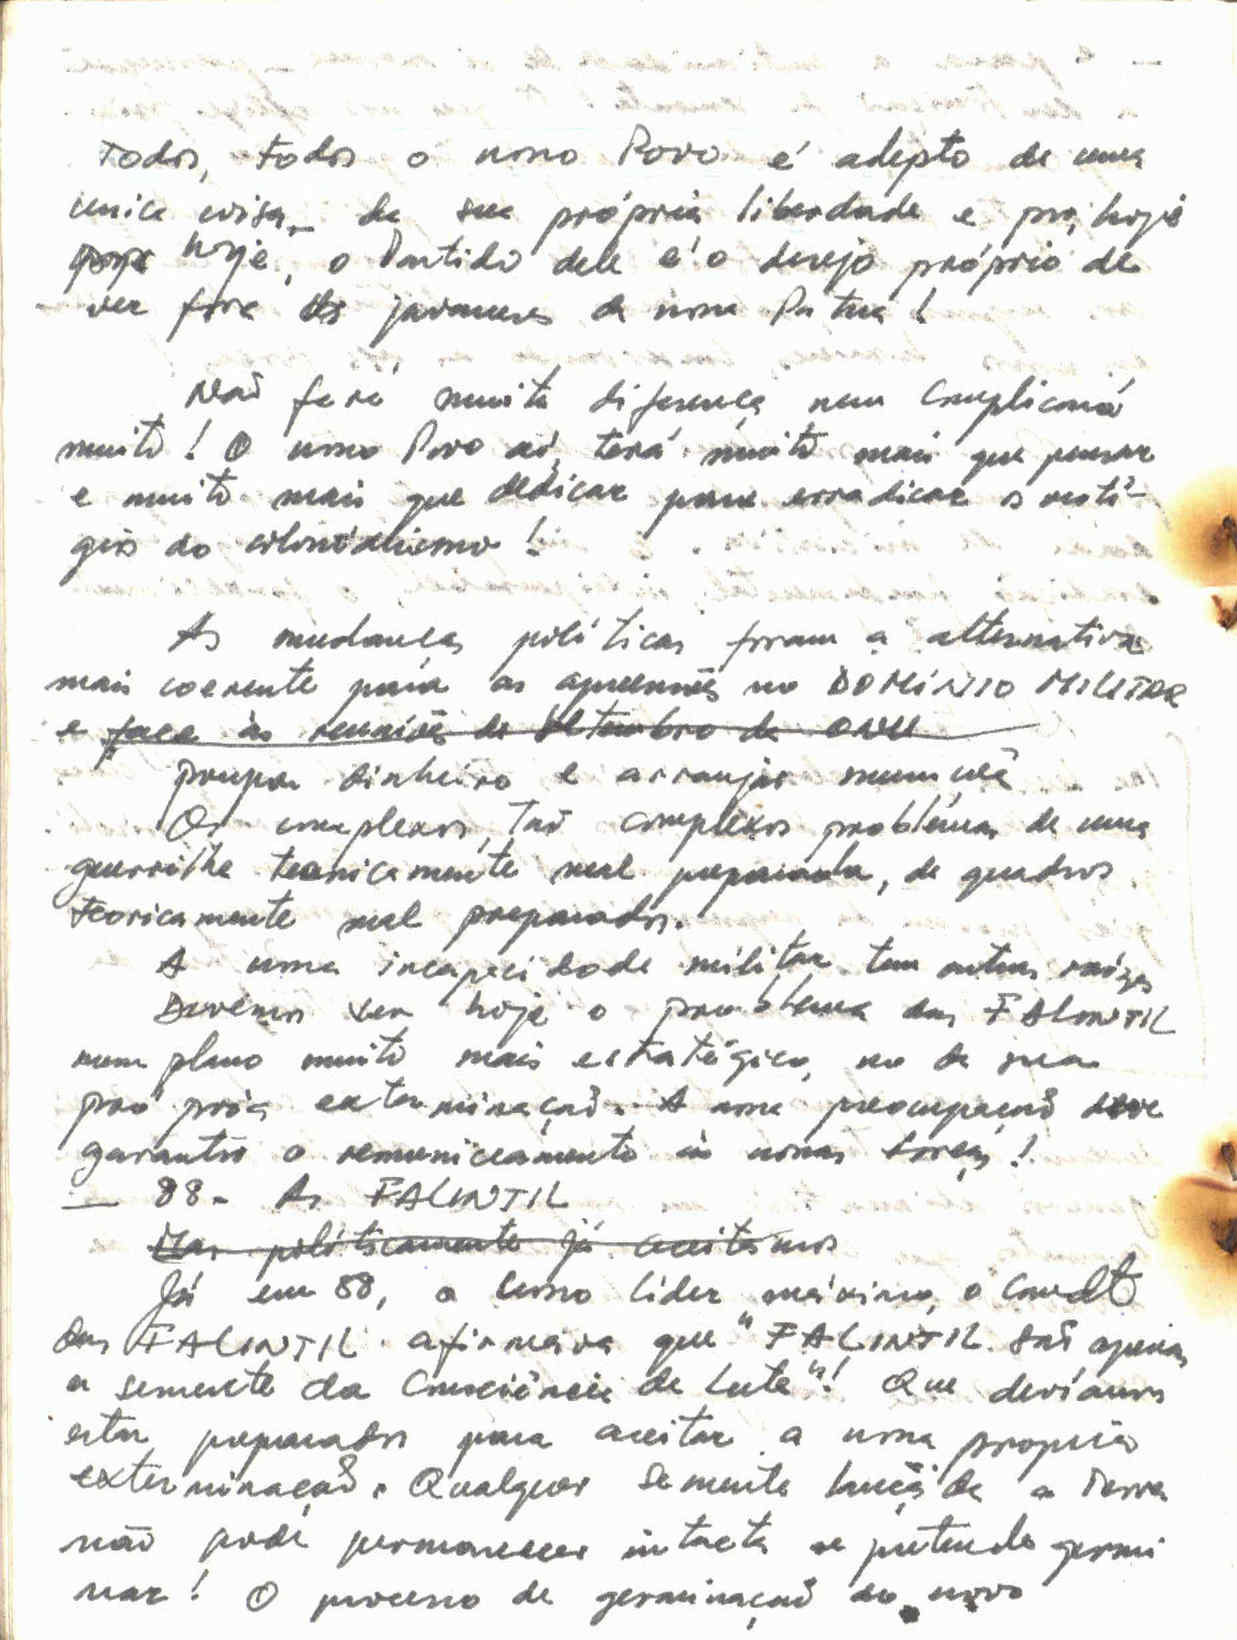 Todos, todos o nosso Povo é adepto de uma
única coisa, da sua própria liberdade e por, hoje
hoje, o Partido dele é o desejo próprio de
ver fora os javaneses da nossa Pátria!
Não fará muita diferença nem complicará
muito! O nosso Povo aí, terá muito mais que pensar
e muito mais que dedicar para erradicar os vestí-
gios do colonialismo!
As mudanças políticas foram a alternativa
mais coerente para as apreensões no DOMÍNIO MILITAR
e face às reuniões de Setembro de
poupar dinheiro e arranjar munições
Os complexos, tão complexos problemas de uma
guerrilha tecnicamente mal preparada, de quadros
teoricamente mal preparados.
A nossa incapacidade militar tem outras raízes
Devemos ver hoje o problema das FALINTIL
num plano muito mais estratégico, no da sua
própria exterminação. A nossa preocupação deve
garantir o remuniciamento às nossas forças!
— 88 - As FALINTIL
Mas politicamente já aceitamos
Já em 88, o nosso líder máximo, o Comdt
das FALINTIL afirmava que "FALINTIL são apenas
a semente da Consciência de Luta"! Que devíamos
estar preparados para aceitar a nossa própria
exterminação. Qualquer semente lançada a Terra
não pode permanecer intacta se pretende germi
nar! O processo de germinação do novo